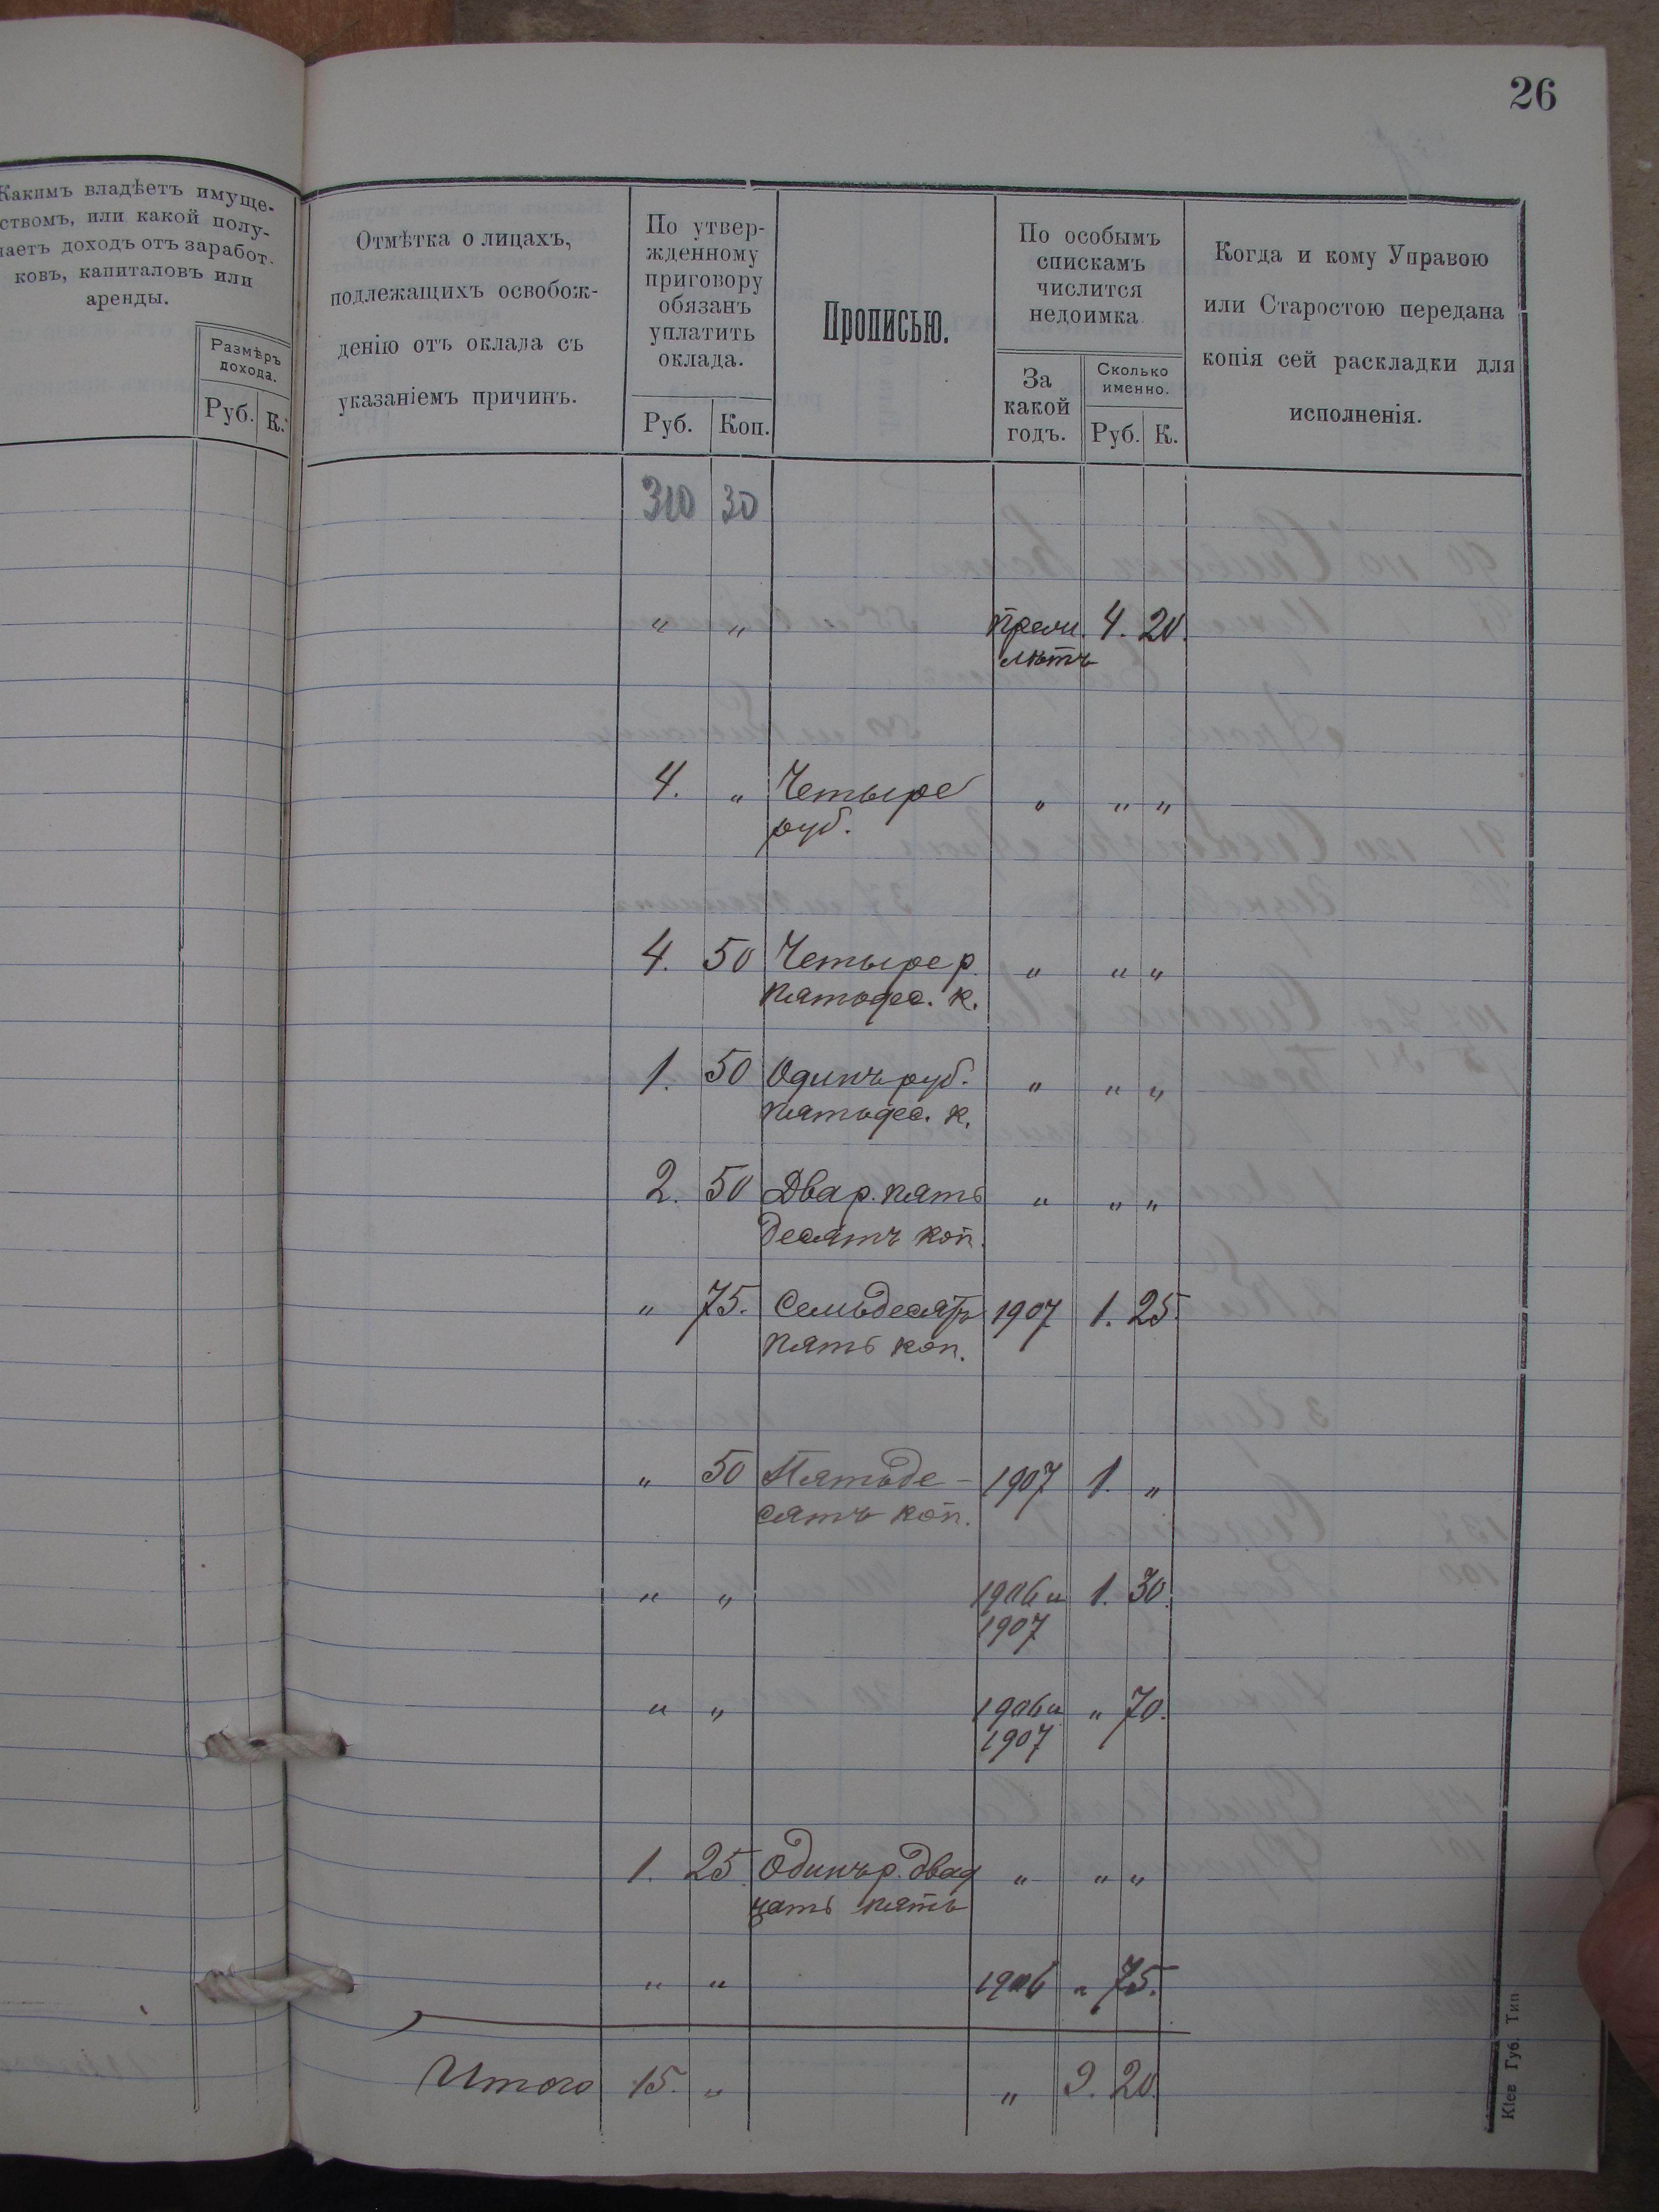 26
Какимъ владѣетъ имуще-
ствомъ, или какой полу-
чаетъ доходъ отъ заработ-
ковъ, капиталовъ или
аренды.
Размѣръ
дохода.
Руб. К.
Отмѣтка о лицахъ,
подлежащихъ освобож-
денію отъ оклада съ
указаніемъ причинъ.
По утвер-
жденному
приговору
обязанъ
уплатить
оклада.
Руб. Коп.
Прописью.
По особымъ
спискамъ
числится
недоимка
За
какой
годъ.
Сколько
именно.
Руб. К.
Когда и кому Управою
или Старостою передана
копія сей раскладки для
исполненія.
310 30
" " 4. 20.
лѣтъ
4. " Четыре " " "
руб.
4. 50 Четыре р. " " "
пятьдес. к.
1. 50 Одинъ руб. " " "
пятьдес. к.
2. 50 Два р. пять " " "
десятъ коп.
" 75. Семьдесятъ 1907 1. 25.
пять коп.
" 50 Пятьде- 1907 1. "
сятъ коп.
" " 1906 и 1. 30.
1907
" " 1906 и " 70.
1907
1. 25 Одинъ р. двад " " "
цать пять
" " 1906 " 75.
Итого 15. " " 9. 20.
Кіев Губ. Тип